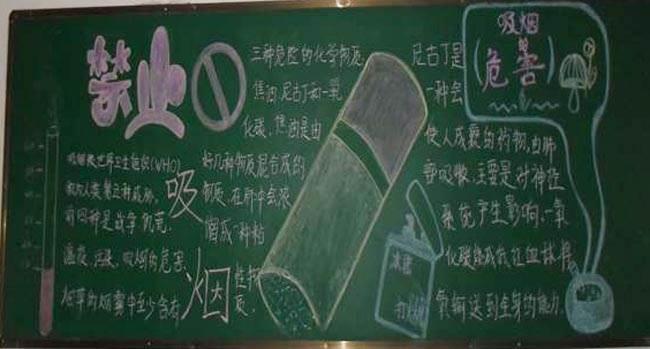 禁止
吸烟
吸烟
的
危害
吸烟被世界卫生组织(WHO)
前四种是战争、饥荒、
瘟疫、污染、吸烟的危害、
烟草的烟雾中至少含有
三种危险的化学物质
焦油、尼古丁和一氧
化碳、焦油是由
好几种物质混合成的
物质、在肺中会浓
缩成一种粘
性物
质。
尼古丁是
一种会
使人成瘾的药物,由肺
部吸收、主要是对神经
系统产生影响、一氧
化碳能减低红血球将
氧输送到全身的能力。